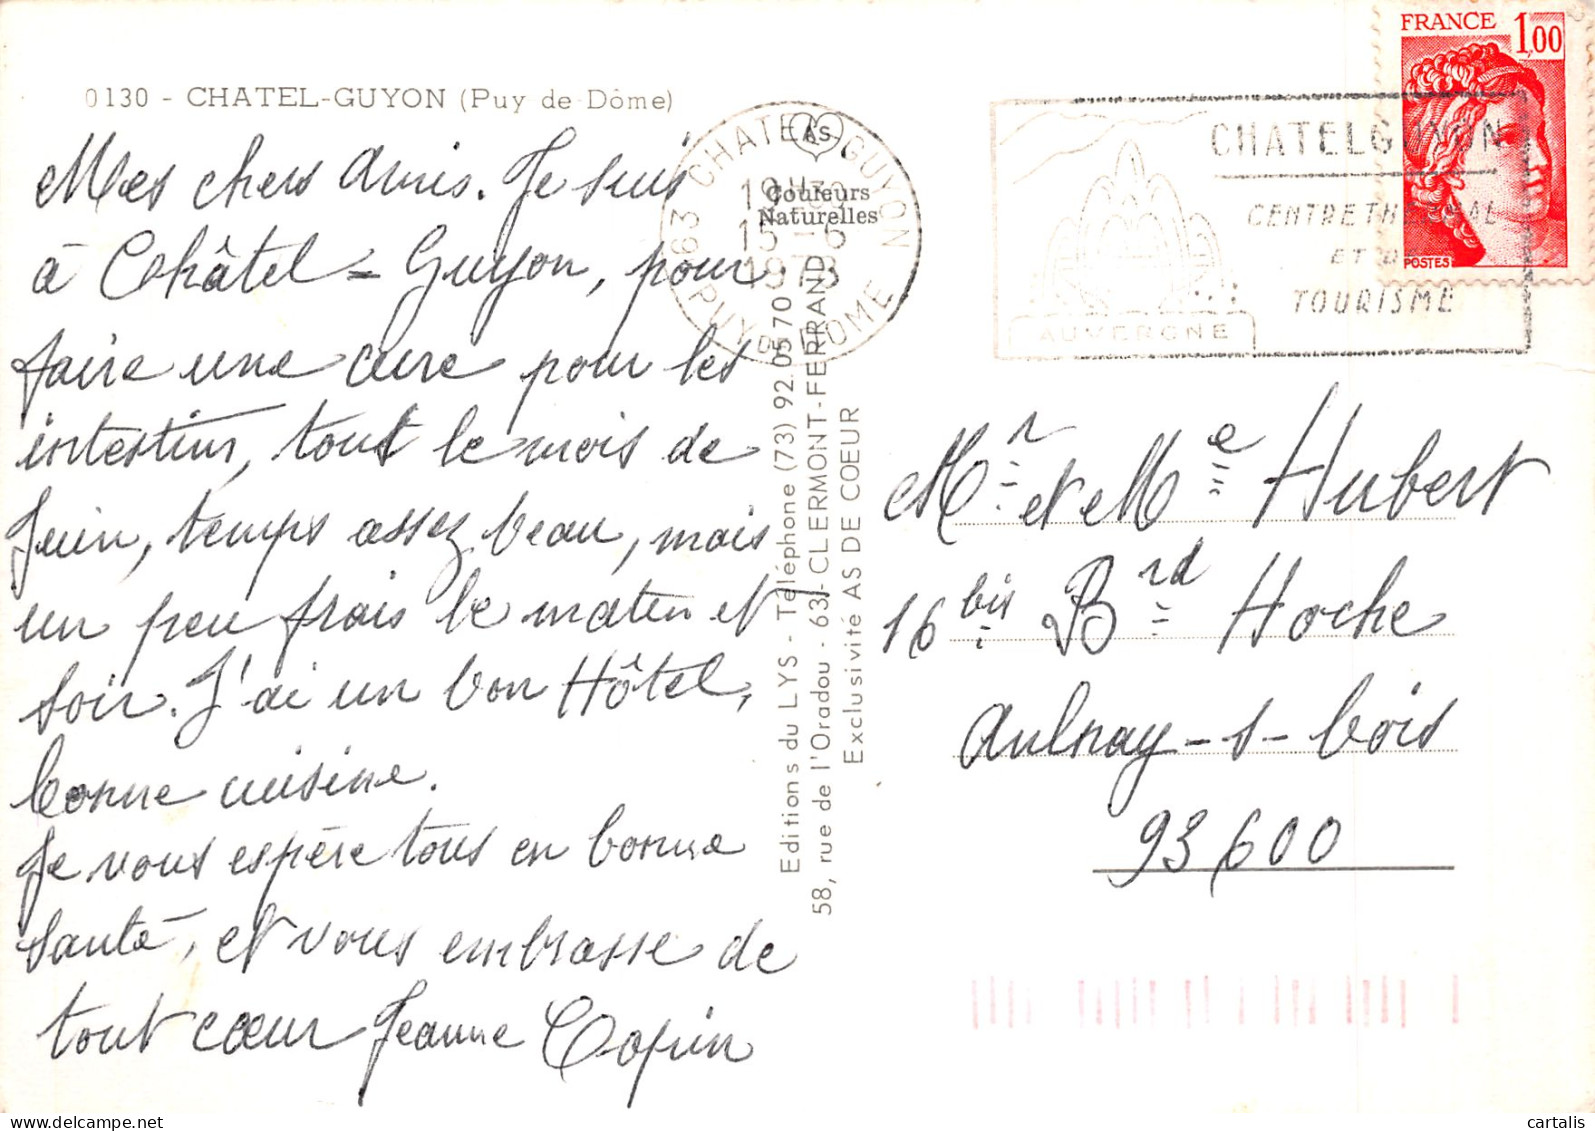 0130 - CHATEL-GUYON (Puy de Dôme)
Mes chers Amis. Je suis
à Châtel-Guyon, pour
faire une cure pour les
intestins, tout le mois de
Juin, temps assez beau, mais
un peu frais le matin et
soir. J'ai un bon Hôtel,
bonne cuisine.
Je vous espère tous en bonne
santé, et vous embrasse de
tout cœur Jeanne
AS
Couleurs
Naturelles
63 CHATEL GUYON
PUY DE DOME
15 - 6
1978
Editions du LYS - Téléphone (73) 92.05.70
58, rue de l'Oradou - 63 - CLERMONT-FERRAND
Exclusivité AS DE COEUR
AUVERGNE
CHATELGUYON
CENTRE THERMAL
ET DE
TOURISME
FRANCE 1,00
POSTES
Mr et Me Hubert
16 bis Brd Hoche
Aulnay-s-bois
93600
cartalis
delcampe.net